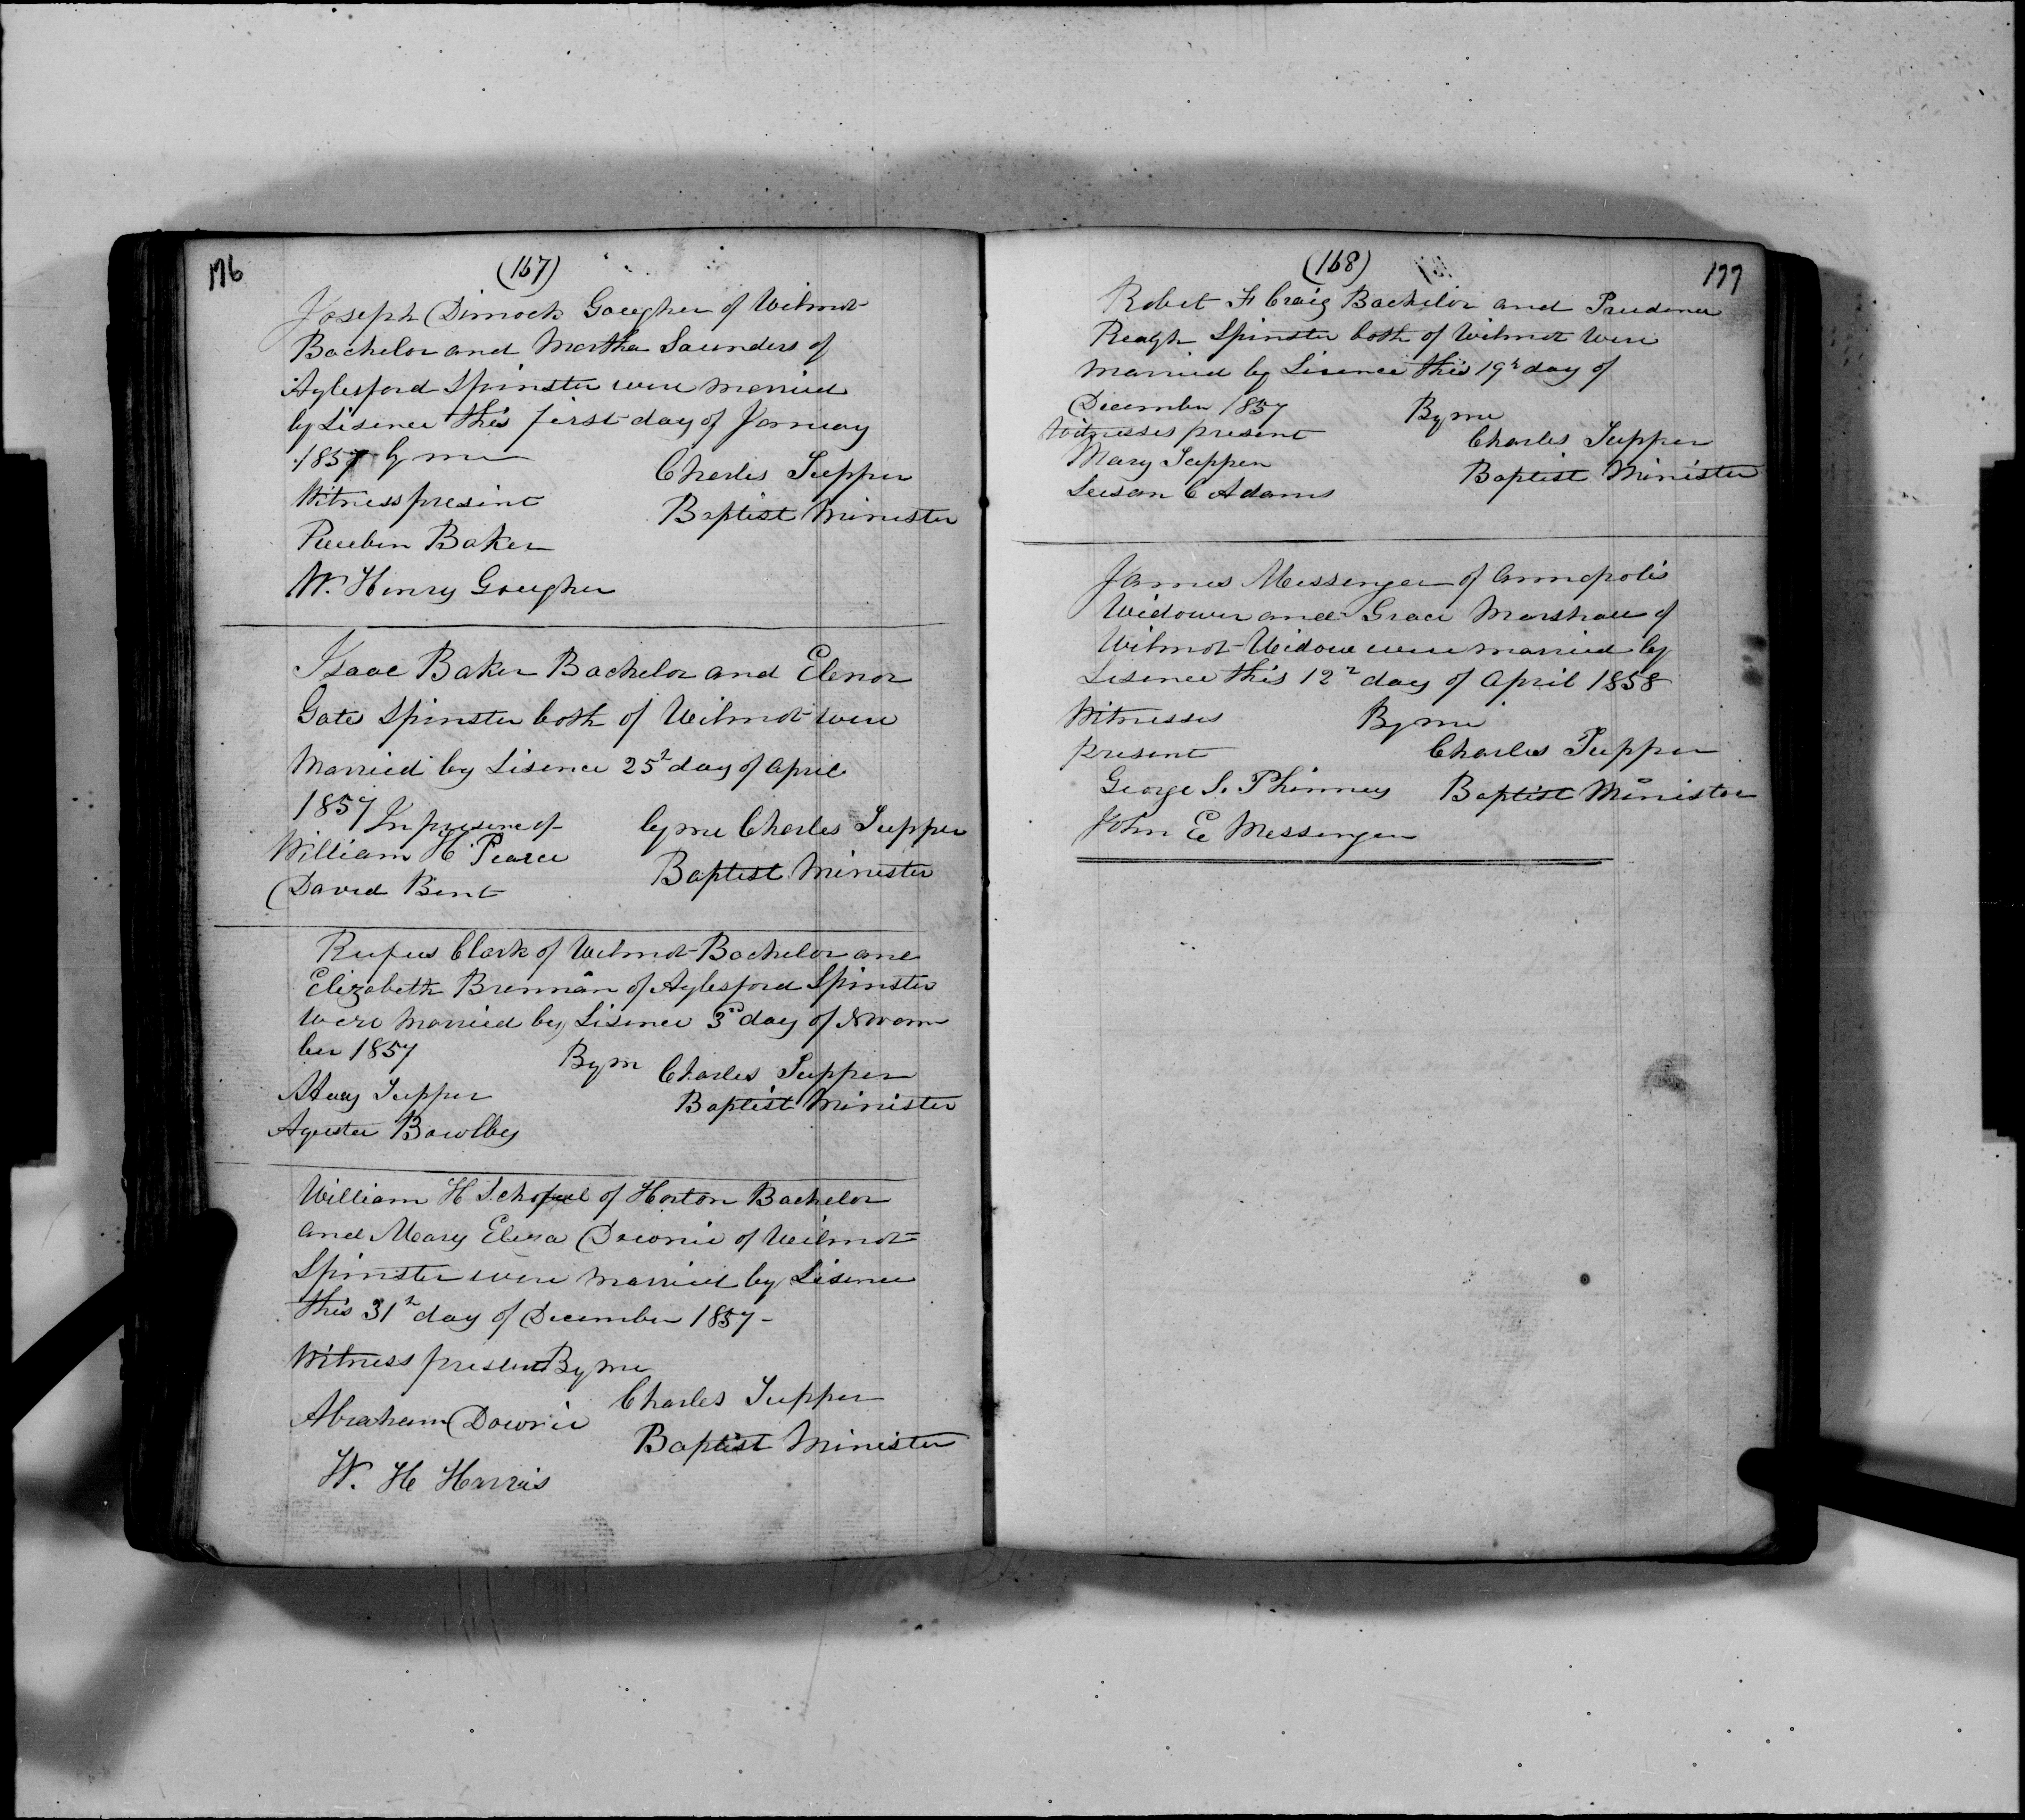 176
(167)
Joseph Dimock Gaugher of Wilmot
Bachelor and Martha Saunders of
Aylesford Spinster were married
by Lisence this first day of January
1857 by me
Charles Tupper
Witness present
Baptist Minister
Reuben Baker
W. Henry Gaugher
Isaac Baker Bachelor and Elenor
Gates Spinster both of Wilmot were
Married by Lisence 25th day of April
1857 In presence of
by me Charles Tupper
William H Pearce
Baptist Minister
David Bent
Rufus Clark of Wilmot Bachelor and
Elizabeth Brennan of Aylesford Spinster
were married by Lisence 3rd day of Novem
ber 1857
By m Charles Tupper
Tupper
Baptist Minister
Bowlby
William H Schofeel of Horton Bachelor
and Mary Eliza Downie of Wilmot
Spinster were married by Lisence
this 31st day of December 1857 -
Witness present By me
Charles Tupper
Abraham Downie
Baptist Minister
W. H Harris
(168)
177
Robet F Craig Bachelor and Prudence
Reagh Spinster both of Wilmot were
married by Lisence this 19th day of
December 1857
By me
Witnesses present
Charles Tupper
Mary Tupper
Baptist Minister
Susan C Adams
James Messenger of Annapolis
Widower and Grace Marshall of
Wilmot Widow were married by
Lisence this 12th day of April 1858
Witnesses
By me
present
Charles Tupper
George S. Phinney
Baptist Minister
John E Messenger